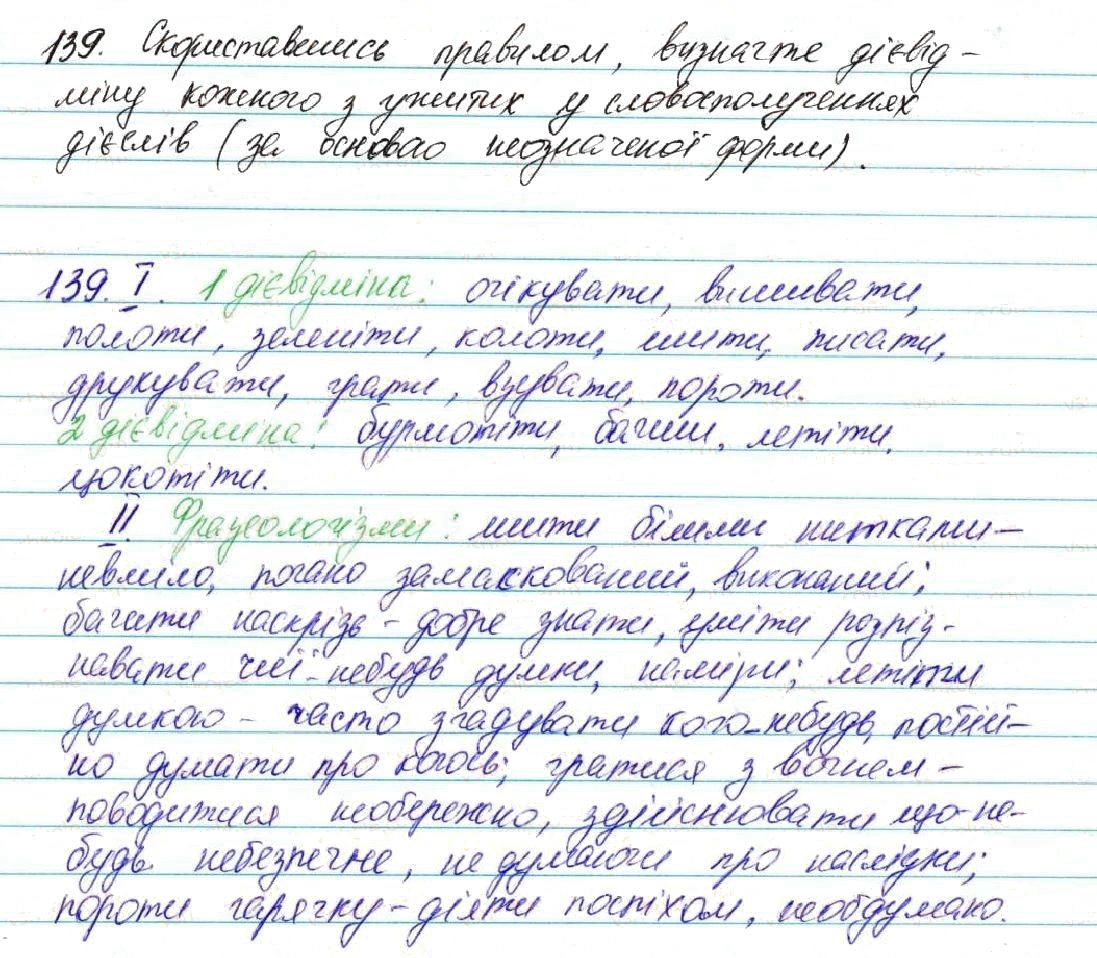 139. Скориставшись правилом, визначте дієвід-
міну кожного з ужитих у словосполученнях
дієслів (за основою неозначеної форми).
139. I. 1 дієвідміна: очікувати, вишивати,
полоти, зеленіти, колоти, шити, писати,
друкувати, грати, взувати, пороти.
2 дієвідміна: бурмотіти, бачити, летіти,
цокотіти.
II. Фразеологізми: шити білими нитками-
невміло, погано замаскований, виконаний;
бачити наскрізь - добре знати, уміти розпіз-
навати чиї-небудь думки, наміри; летіти
думкою - часто згадувати кого-небудь, постій-
но думати про когось; гратися з вогнем -
поводитися необережно, здійснювати що-не-
будь небезпечне, не думаючи про наслідки;
пороти гарячку - діяти поспіхом, необдумано.